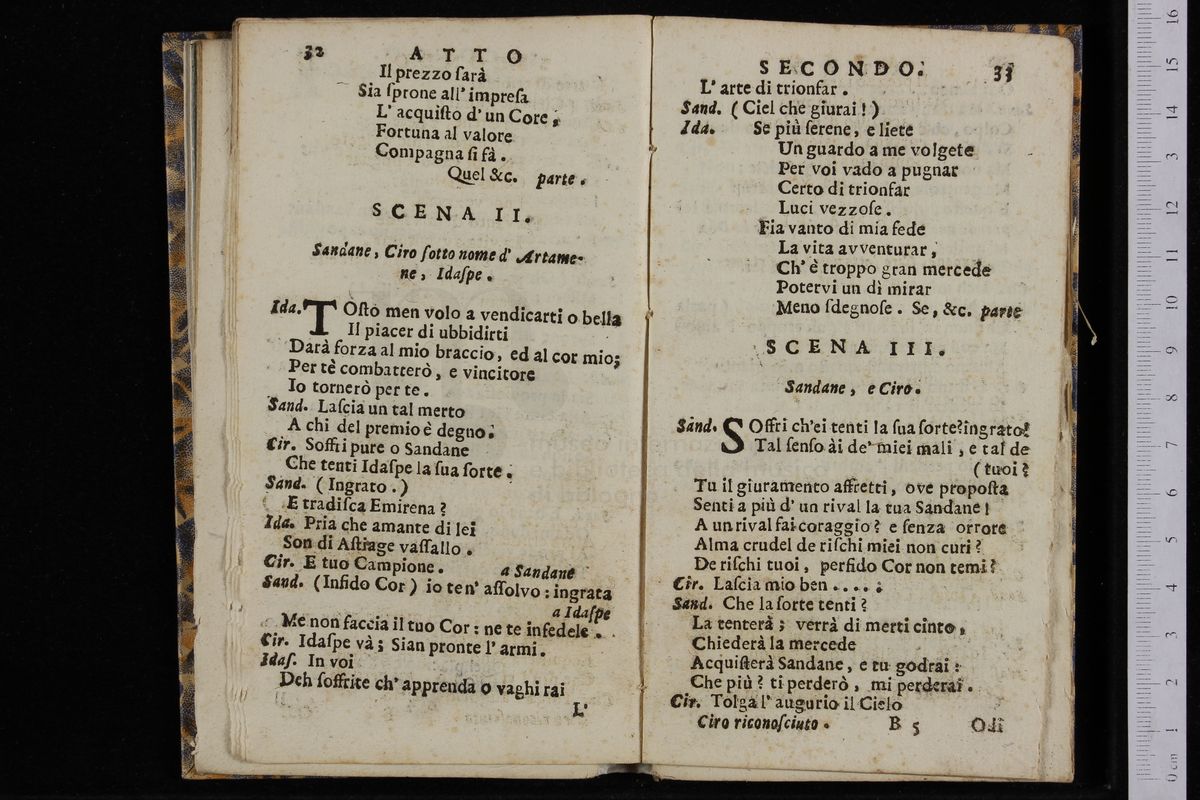 32 ATTO
Il prezzo ſarà
Sia ſprone all' impreſa
L' acquiſto d' un Core,
Fortuna al valore
Compagna ſi fà.
Quel &c. parte.
SCENA II.
Sandane, Ciro ſotto nome d' Artame-
ne, Idaſpe.
Ida. TOſto men volo a vendicarti o bella
Il piacer di ubbidirti
Darà forza al mio braccio, ed al cor mio;
Per tè combatterò, e vincitore
Io tornerò per te.
Sand. Laſcia un tal merto
A chi del premio è degno.
Cir. Soffri pure o Sandane
Che tenti Idaſpe la ſua ſorte.
Sand. (Ingrato.)
E tradiſca Emirena?
Ida. Pria che amante di lei
Son di Aſtiage vaſſallo.
Cir. E tuo Campione. a Sandane
Sand. (Infido Cor) io ten' aſſolvo: ingrata
a Idaſpe
Me non faccia il tuo Cor: ne te infedele.
Cir. Idaſpe và; Sian pronte l' armi.
Idaſ. In voi
Deh ſoffrite ch' apprenda o vaghi rai
L'
SECONDO. 33
L' arte di trionfar.
Sand. (Ciel che giurai!)
Ida. Se più ſerene, e liete
Un guardo a me volgete
Per voi vado a pugnar
Certo di trionfar
Luci vezzoſe.
Fia vanto di mia fede
La vita avventurar,
Ch' è troppo gran mercede
Potervi un dì mirar
Meno ſdegnoſe. Se, &c. parte
SCENA III.
Sandane, e Ciro.
Sand. SOffri ch'ei tenti la ſua ſorte? ingrato!
Tal ſenſo ài de' miei mali, e tal de
(tuoi?
Tu il giuramento affretti, ove propoſta
Senti a più d' un rival la tua Sandane!
A un rival fai coraggio? e ſenza orrore
Alma crudel de riſchi miei non curi?
De riſchi tuoi, perfido Cor non temi?
Cir. Laſcia mio ben ....
Sand. Che la ſorte tenti?
La tenterà; verrà di merti cinto,
Chiederà la mercede
Acquiſterà Sandane, e tu godrai:
Che più? ti perderò, mi perderai.
Cir. Tolga l' augurio il Cielo
Ciro riconoſciuto. B 5 Odi
16
15
14
13
12
11
10
9
8
7
6
5
4
3
2
1
0 cm